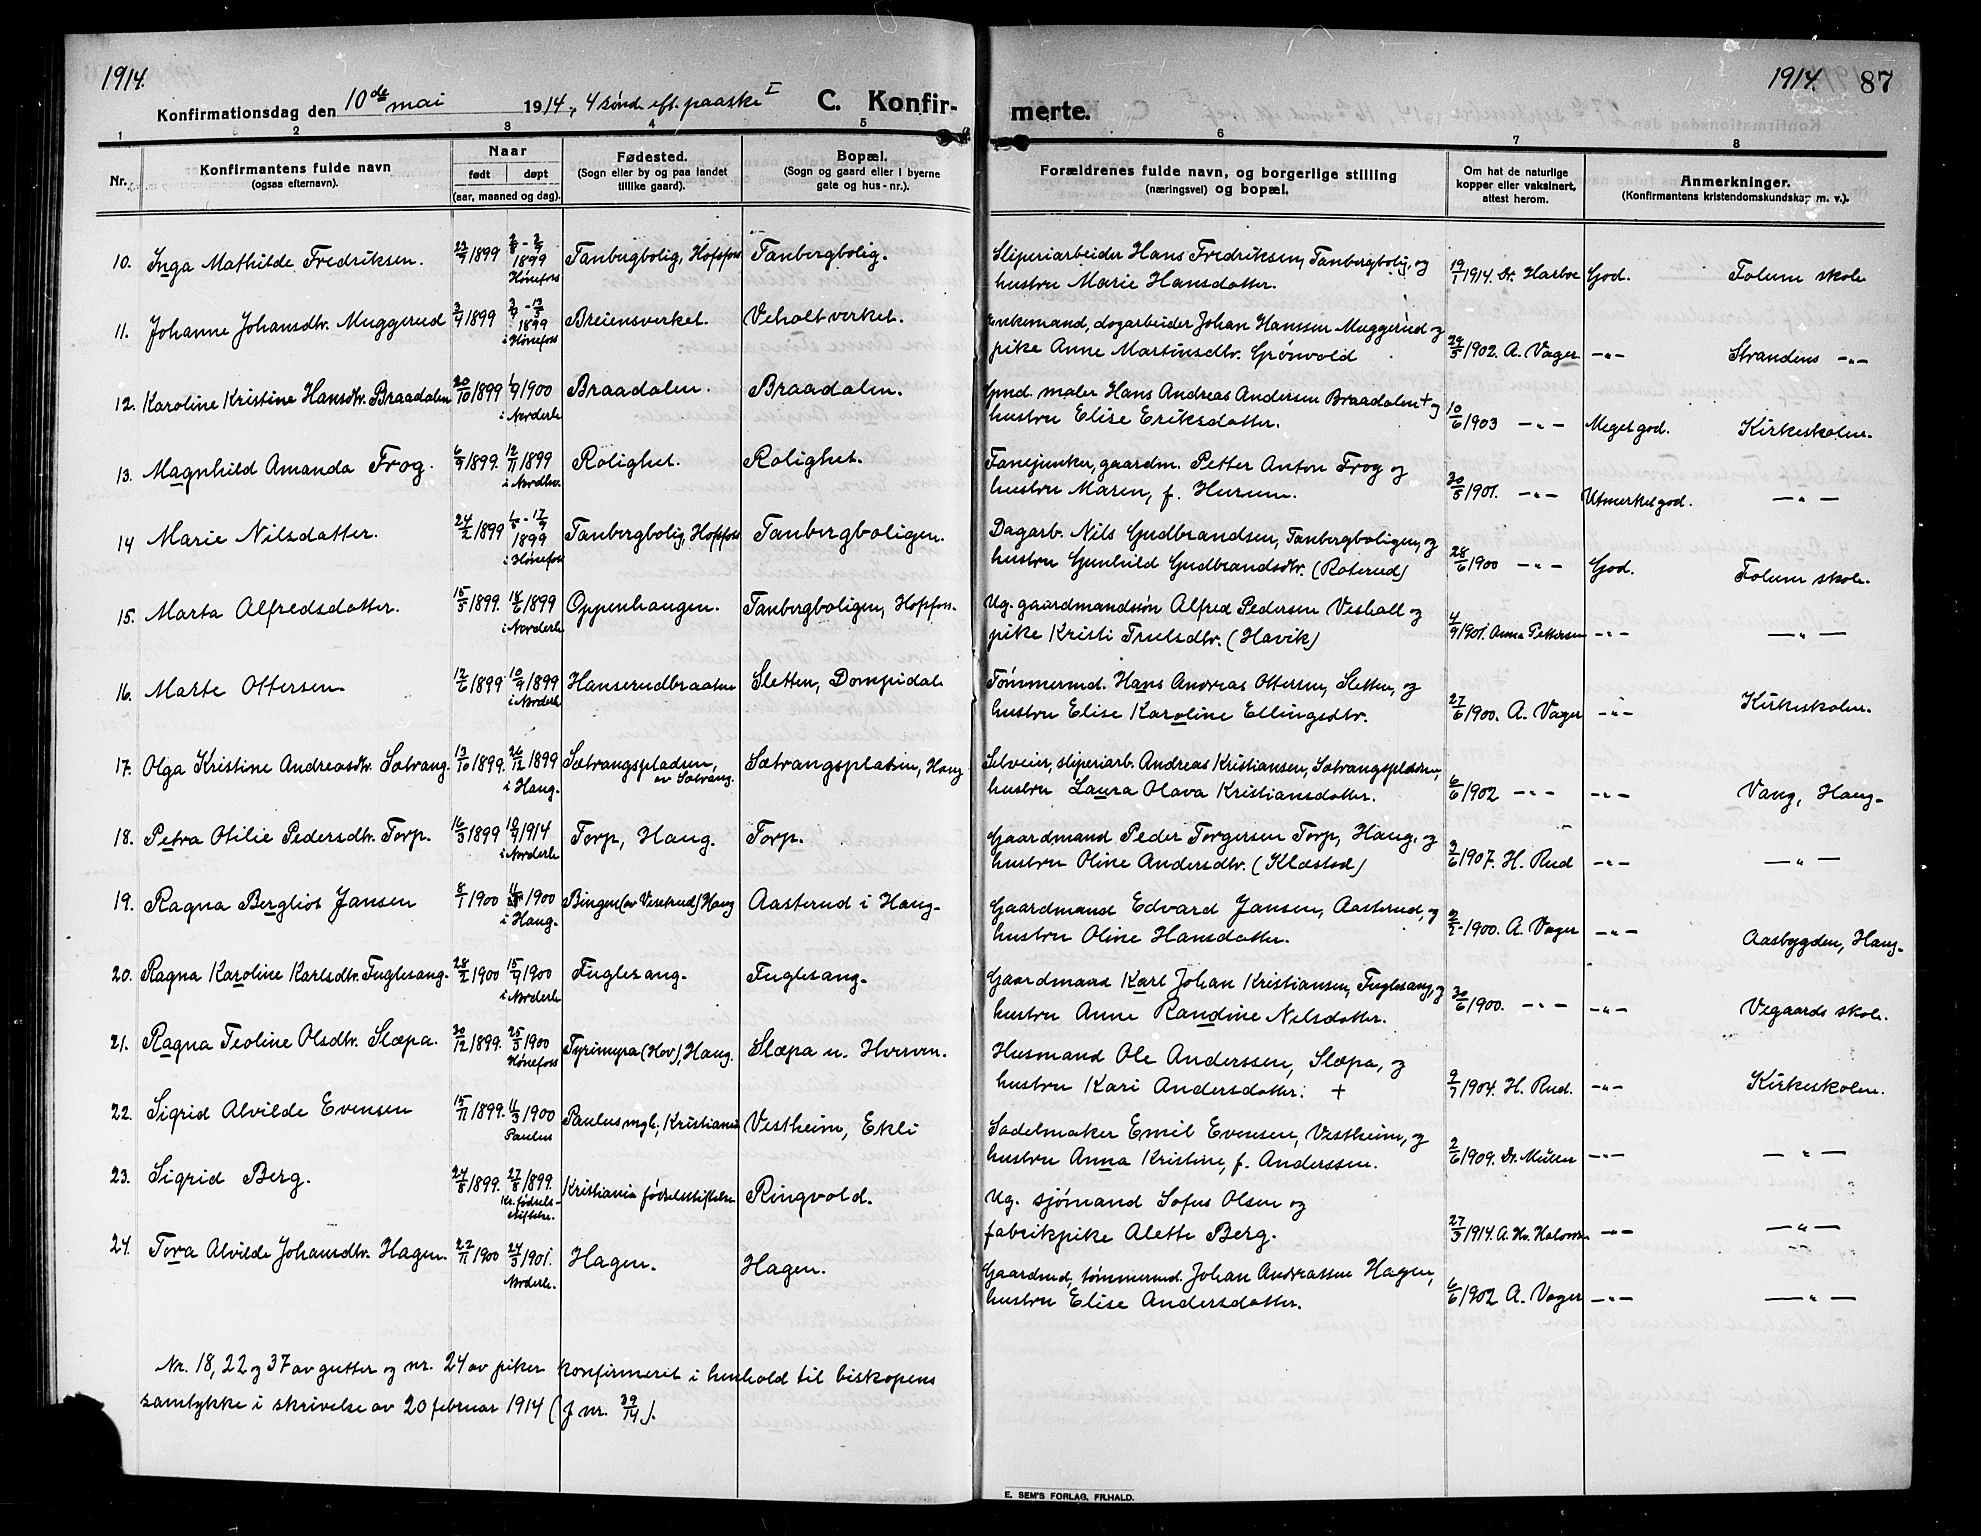 1914.
1914. 87
Konfirmationsdag den 10de mai 1914, 4 sønd. eft. paaske I C. Konfir-
merte.
1 2 3 4 5 6 7 8
Nr. Konfirmantens fulde navn (ogsaa efternavn). Naar født døpt (aar, maaned og dag). Fødested. (Sogn eller by og paa landet tillike gaard). Bopæl. (Sogn og gaard eller i byerne gate og hus-nr.). Forældrenes fulde navn, og borgerlige stilling (næringsvei) og bopæl. Om hat de naturlige kopper eller vaksinert, attest herom. Anmerkninger. (Konfirmantens kristendomskundskap m. v.).
10. Inga Mathilde Fredriksen. 1899 1899 Hønefoss Tanbergbolig, Hofsfoss Tanbergbolig. Sliperiarbeider Hans Fredriksen, Tanbergbolig, og
hustru Marie Hansdatter. 19/1 1914. Dr. Harboe God. Folum skole
11. Johanne Johansdtr. Muggerud 1899 1899 i Hønefoss Breiensverket. Veholtverket. Enkemand, dagarbeider Johan Hanssen Muggerud og
pike Anne Martinsdtr. Grønvold 29/5 1902. A. Vager -"- Strandens -"-
12. Karoline Kristine Hansdtr. Braadalen 20/10 1899 1900 i Norderh. Braadalen. Braadalen. Gmd. maler Hans Andreas Andersen Braadalen + og
hustru Elise Eriksdatter. 10/6 1903 -"- Meget god. Kirkeskolen.
13. Magnhild Amanda Frog. 6/9 1899. 12/11 1899 i Nordhv. Rolighet. Rolighet. Fanejunker, gaardm. Petter Anton Frog og
hustru Maren, f. Hurum. 30/5 1901. -"- Utmerket god. -"-
14 Marie Nilsdatter. 24/2 1899 1899 i Hønefoss Tanbergbolig, Hofsfoss Tanbergboligen. Dagarb. Nils Gudbrandsen, Tanbergboligen, og
hustru Gunhild Gudbrandsdtr. (Roterud) 28/6 1900 -"- God. Folum skole.
15. Marta Alfredsdatter. 15/5 1899. 18/6 1899 i Norderh Oppenhaugen. Tanbergboligen, Hofsfoss. Ug. gaardmandssøn Alfred Pedersen Veshall og
pike Kristi Trulsdtr. (Havik) 4/9 1901. Anna Pettersen -"- -"-
16. Marte Ottersen. 12/6 1899 10/9 1899 i Norderh. Hanserudbraaten Sletten, Dompidal. Tømmermd. Hans Andreas Ottersen, Sletten, og
hustru Elise Karoline Ellingsdtr. 27/6 1900. A. Vager -"- Kirkeskolen.
17. Olga Kristine Andreasdtr. Sætrang. 13/10 1899. 26/12 1899 i Haug. Sætrangspladsen, av Sætrang. Sætrangspladsen, Haug Selveier, sliperiarb. Andreas Kristiansen, Sætrangspladsen,
hustru Laura Olava Kristiansdatter. 6/6 1902 -"- -"- Vang, Haug.
18. Petra Otilie Pedersdtr. Torp. 16/3 1899 1914 i Norderh Torp, Haug. Torp. Gaardmand Peder Torgersen Torp, Haug, og
hustru Oline Andersdtr. (Klæstad) 3/6 1907. H. Rud -"- -"-
19. Ragna Bergliot Jansen 8/1 1900 1900 i Haug. Bingen (av Vesetrud) Haug Aasterud i Haug. Gaardmand Edvard Jansen, Aasterud, og
hustru Oline Hansdatter. 1900. A. Vager -"- Aasbygden, Haug.
20. Ragna Karoline Karlsdtr. Fuglesang. 28/2 1900 15/4 1900 i Norderh Fuglesang. Fuglesang. Gaardmand Karl Johan Kristiansen, Fuglesang, og
hustru Anne Randine Nilsdatter. 30/6 1900. -"- -"- Vegaards skole.
21. Ragna Teoline Olsdtr. Slæpa. 30/12 1899. 25/3 1900 Hønefoss Tyrimyra (Hov), Haug. Slæpa u. Hverven. Husmand Ole Anderssen, Slæpa, og
hustru Kari Andersdatter. + 9/7 1904. H. Rud. -"- Kirkeskolen.
22. Sigrid Alvilde Evensen 15/11 1899. 11/3 1900 Paulus Paulus mgh., Kristiania Vestheim, Ekli Sadelmaker Emil Evensen, Vestheim, og
hustru Anna Kristine, f. Anderssen. 2/6 1909. Dr. Müller -"- -"-
23. Sigrid Berg. 24/8 1899. 27/8 1899. Kr. fødsels-stiftelse. Kristiania fødselsstiftelse Ringvold. Ug. sjømand Sofus Olsen og
fabrikpike Alette Berg. 27/3 1914. A. -"- -"-
24. Tora Alvilde Johansdtr. Hagen. 22/11 1900 24/3 1901. Norderh. Hagen. Hagen. Gaardmd, tømmermd. Johan Andreassen Hagen,
hustru Elise Andersdatter. 6/6 1902 A. Vager -"- -"-
Nr. 18, 22 og 37 av gutter og nr. 24 av piker konfirmeret i henhold til biskopens
samtykke i skrivelse av 20 februar 1914 (J nr. 39/14).
E. SEM'S FORLAG, FR.HALD.